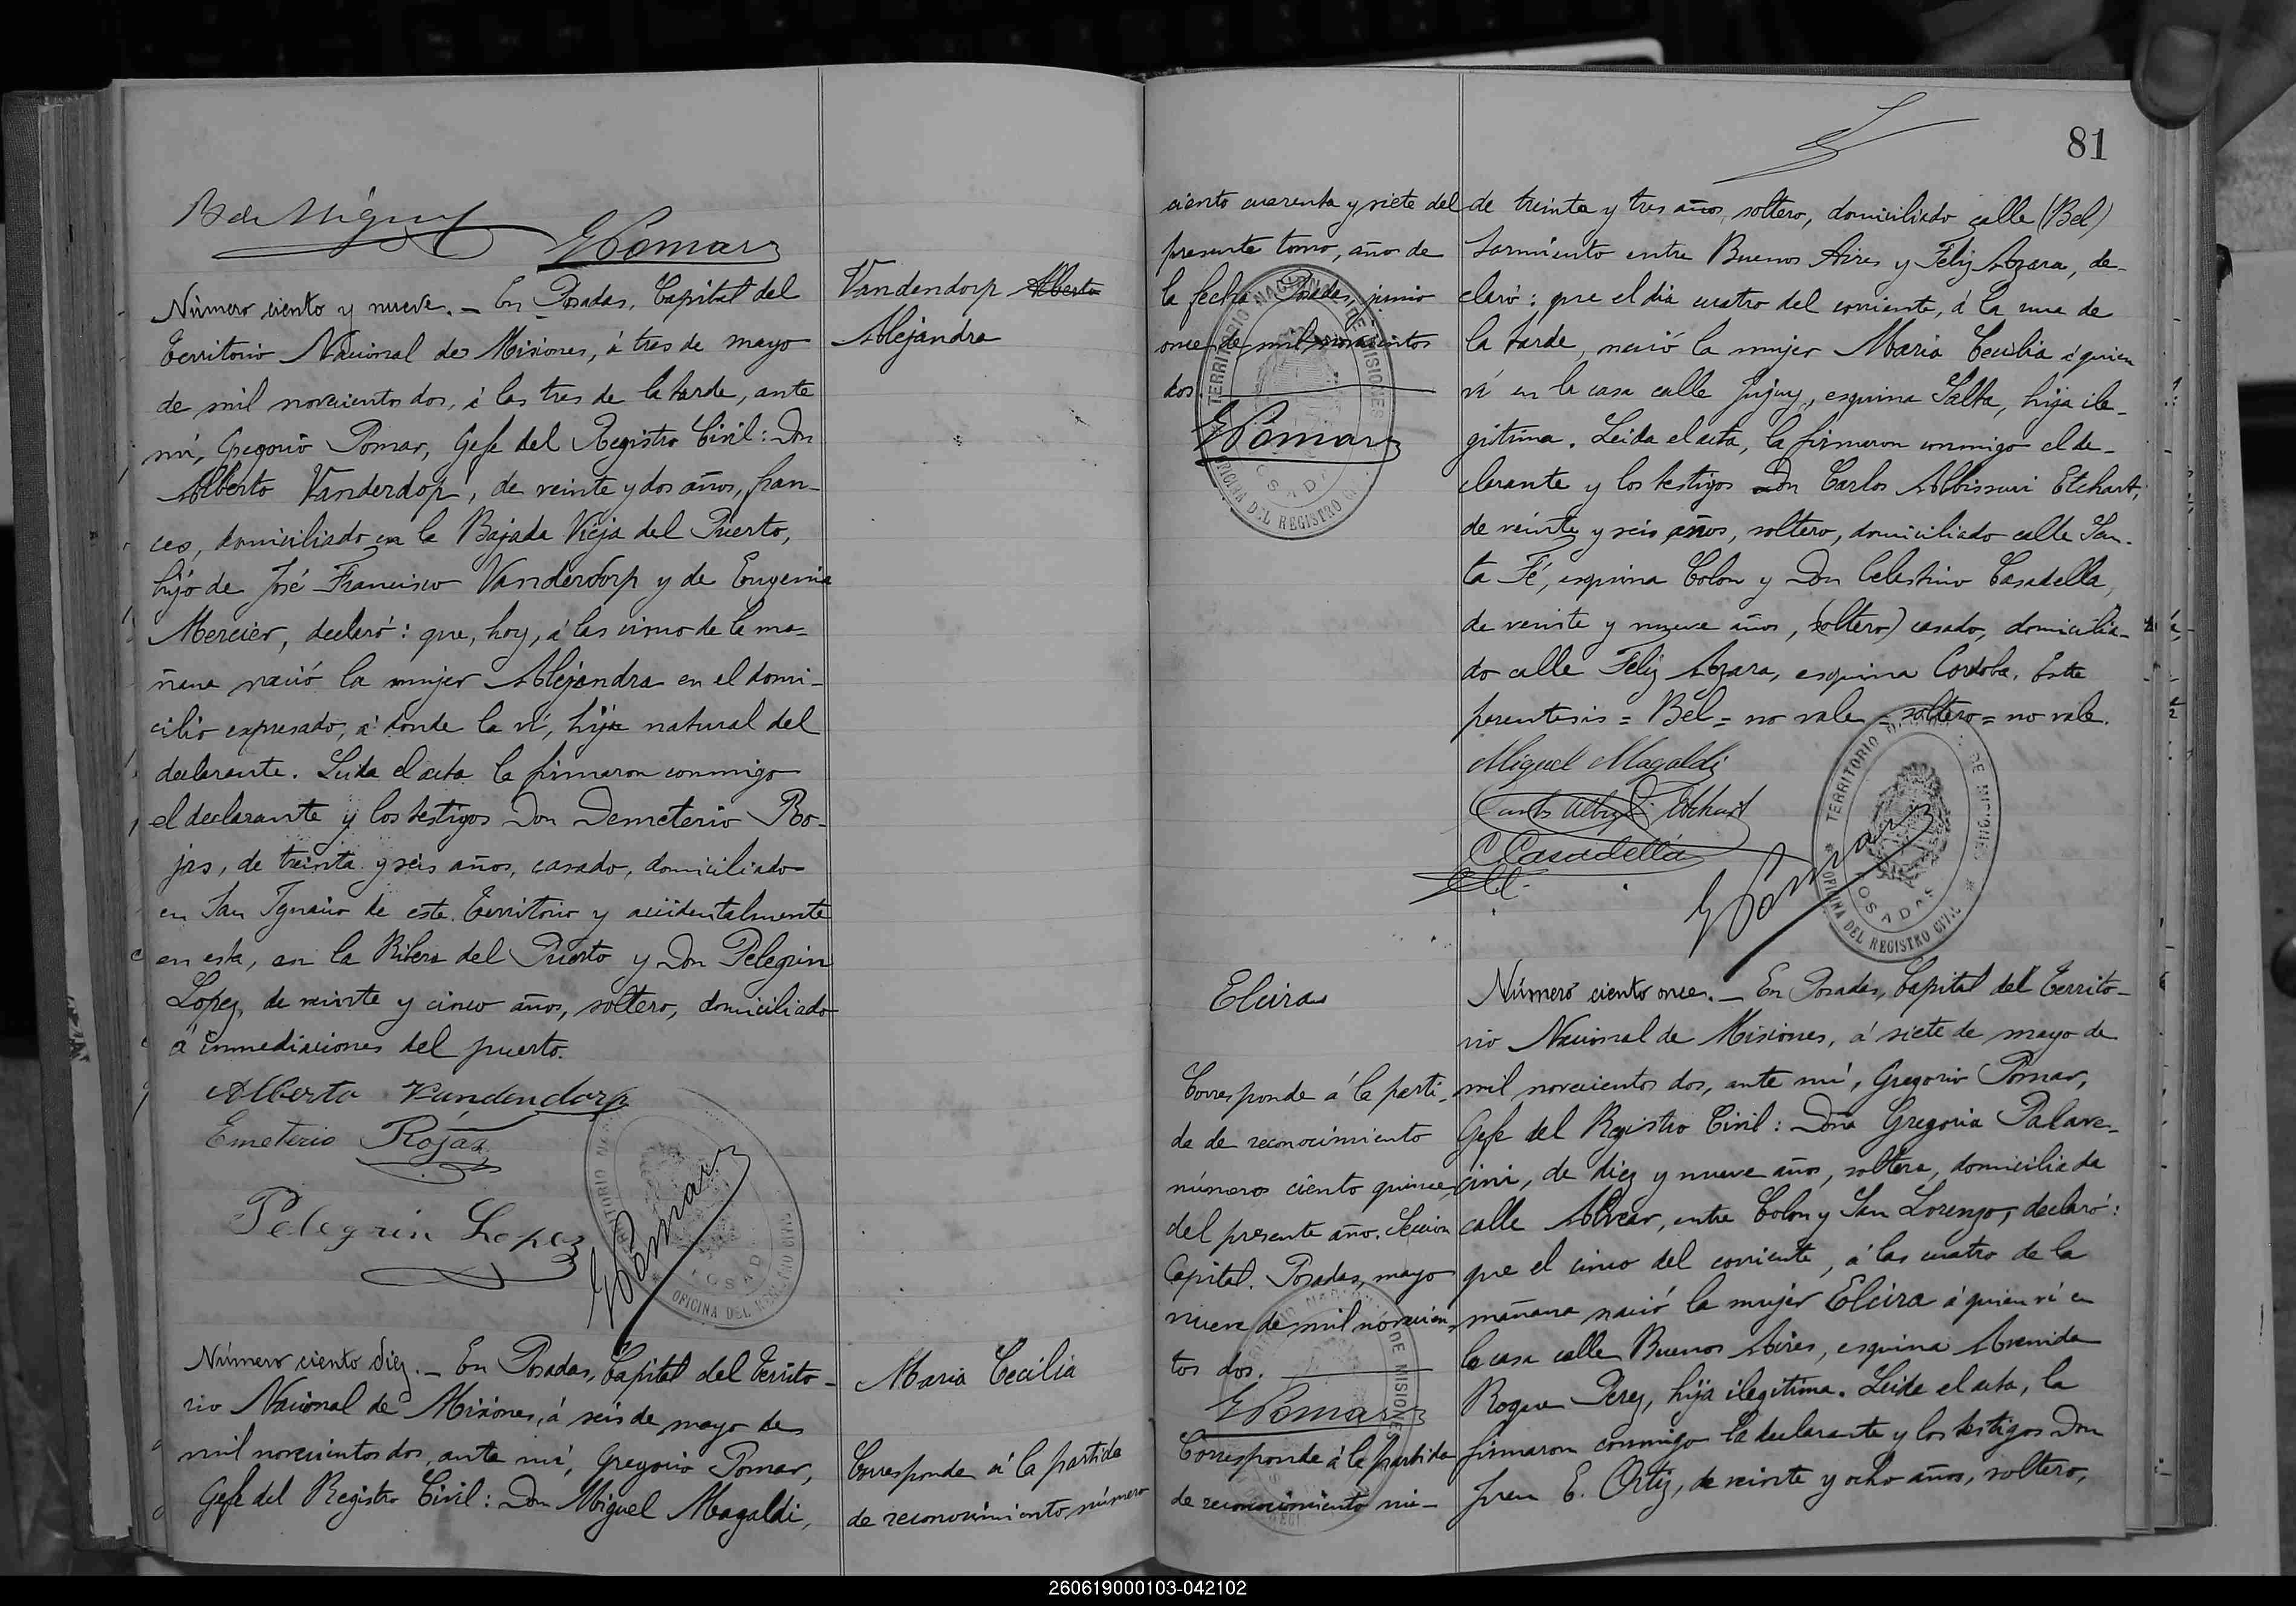 B de Miguel
GPomar
Número ciento y nueve. — En Posadas, Capital del
Territorio Nacional de Misiones, á tres de mayo
de mil novecientos dos, á las tres de la tarde, ante
mí, Gregorio Pomar, Gefe del Registro Civil: Don
Alberto Vanderdop, de veinte y dos años, fran-
ces, domiciliado en la Bajada Vieja del Puerto,
hijo de José Francisco Vanderdorp y de Eugenia
Mercier, declaró: que, hoy, á las cinco de la ma-
ñana nació la mujer Alejandra en el domi-
cilio expresado, á donde la ví, hija natural del
declarante. Leida el acta la firmaron conmigo
el declarante y los testigos Don Demeterio Ro-
jas, de treinta y seis años, casado, domiciliado
en San Ignacio de este Territorio y accidentalmente
en esta, en la Ribera del Puerto y Don Pelegrin
Lopez, de veinte y cinco años, soltero, domiciliado
á inmediaciones del puerto.
Alberto Vandendorp
Emeterio Rojas
Pelegrin Lopez
GPomar
OFICINA DEL REGISTRO CIVIL
Número ciento diez. — En Posadas, Capital del Territo-
rio Nacional de Misiones, á seis de mayo de
mil novecientos dos, ante mí, Gregorio Pomar,
Gefe del Registro Civil: Don Miguel Magaldi,
Vandendorp Alberto
Alejandra
Maria Cecilia
Corresponde á la partida
de reconocimiento número
81
ciento cuarenta y siete del
presente tomo, año de
la fecha Posadas, junio
once de mil novecientos
dos.
GPomar
TERRITORIO NACIONAL DE MISIONES
POSADAS
OFICINA DEL REGISTRO CIVIL
de treinta y tres años, soltero, domiciliado calle (Bel)
Sarmiento entre Buenos Aires y Feliz Azara, de-
claró: que el dia cuatro del corriente, á la una de
la tarde, nació la mujer Maria Cecilia á quien
ví en la casa calle Jujuy, esquina Salta, hija ile-
gitima. Leida el acta, la firmaron conmigo el de-
clarante y los testigos Don Carlos Albissuri Etchart,
de veinte y seis años, soltero, domiciliado calle San-
ta Fé, esquina Colon y Don Celestino Casadella,
de veinte y nueve años, (soltero) casado, domicilia-
do calle Feliz Azara, esquina Cordoba. Este
parentesis = Bel = no vale = soltero = no vale.
Miguel Magaldi
Etchart
C Casadella
GPomar
TERRITORIO NACIONAL DE MISIONES
POSADAS
OFICINA DEL REGISTRO CIVIL
Elcira
Corresponde á la parti-
da de reconocimiento
números ciento quince,
del presente año. Seccion
Capital. Posadas, mayo
nueve de mil novecien-
tos dos.
GPomar
Corresponde á la partida
de reconocimiento nú-
Número ciento once. — En Posadas, Capital del Territo-
rio Nacional de Misiones, á siete de mayo de
mil novecientos dos, ante mí, Gregorio Pomar,
Gefe del Registro Civil: Doña Gregoria Palave-
cini, de diez y nueve años, soltera, domiciliada
calle Alvear, entre Colon y San Lorenzo, declaró:
que el cinco del corriente, á las cuatro de la
mañana nació la mujer Elcira á quien ví en
la casa calle Buenos Aires, esquina Avenida
Roque Perez, hija ilegitima. Leida el acta, la
firmaron conmigo la declarante y los testigos Don
Juan E. Ortiz, de veinte y ocho años, soltero,
260619000103-042102